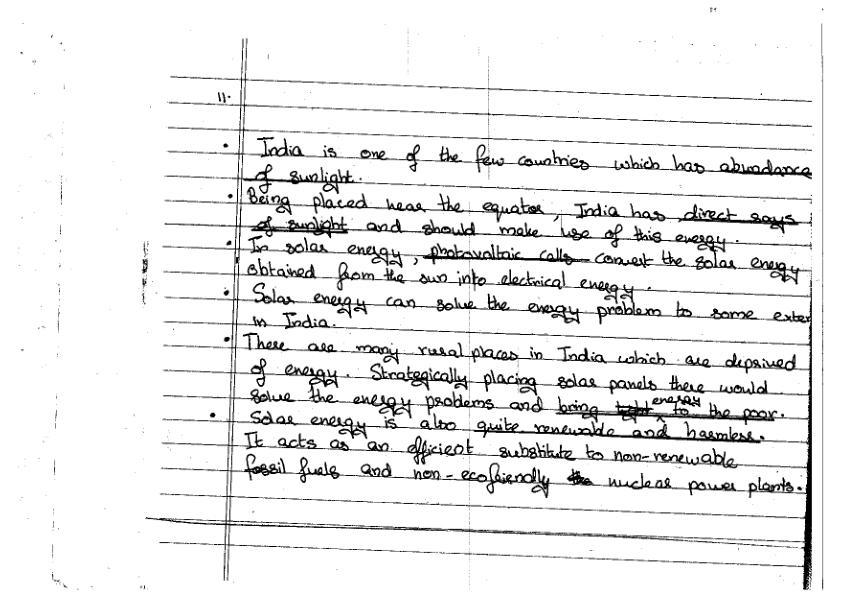 11.
• India is one of the few countries which has abundance
of sunlight.
• Being placed near the equator, India has direct rays
of sunlight and should make use of this energy.
• In solar energy, photovoltaic calls convert the solar energy
obtained from the sun into electrical energy.
• Solar energy can solve the energy problem to some exten
in India.
• There are many rural places in India which are deprived
of energy. Strategically placing solar panels there would
solve the energy problems and bring energy to the poor.
• Solar energy is also quite renewable and harmless.
It acts as an efficient substitute to non-renewable
fossil fuels and non-ecofriendly nuclear power plants.